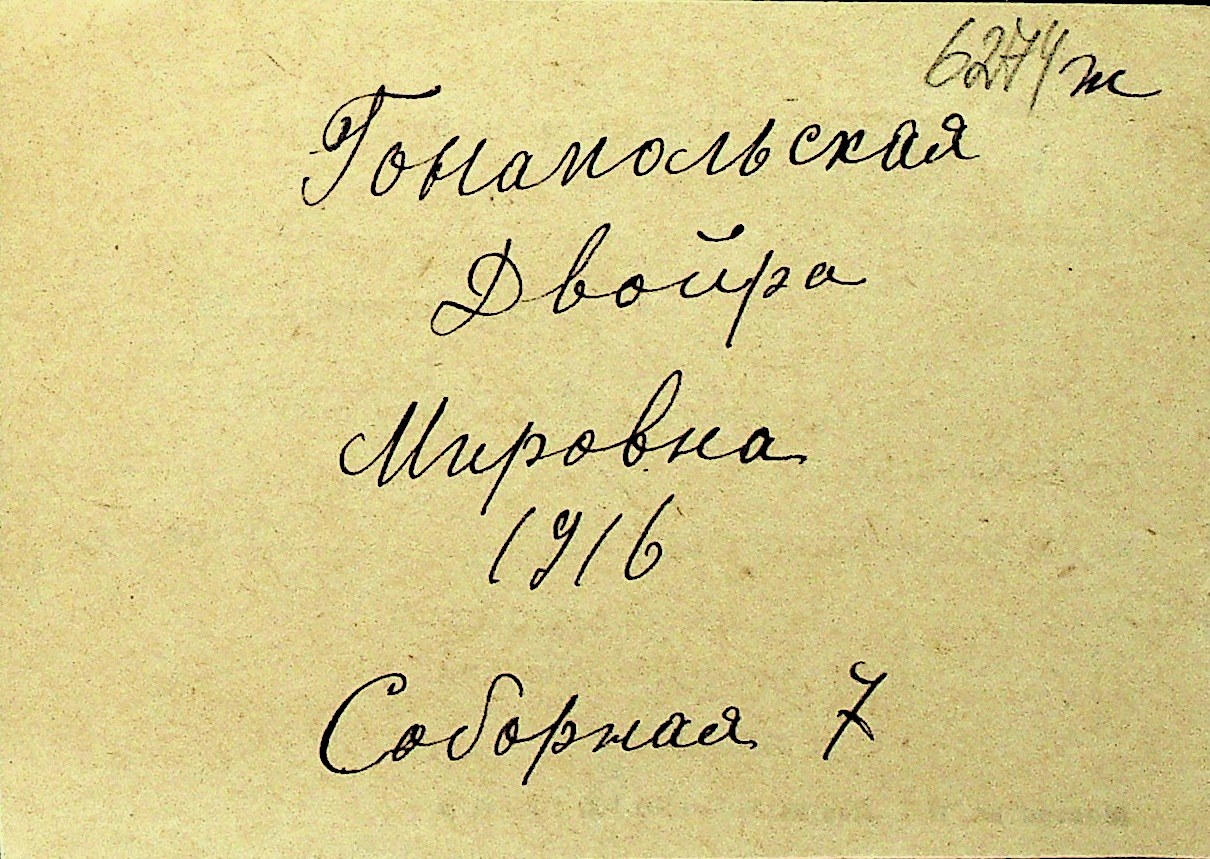 6274 ж
Гонапольская
Двойра
Мировна
1916
Соборная 7